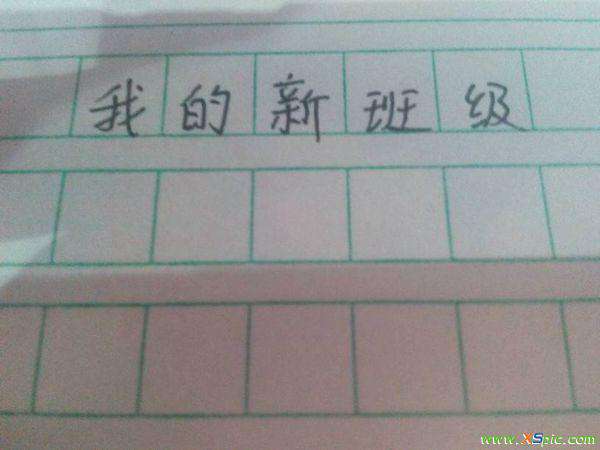 我的新班级
www.XSpic.com